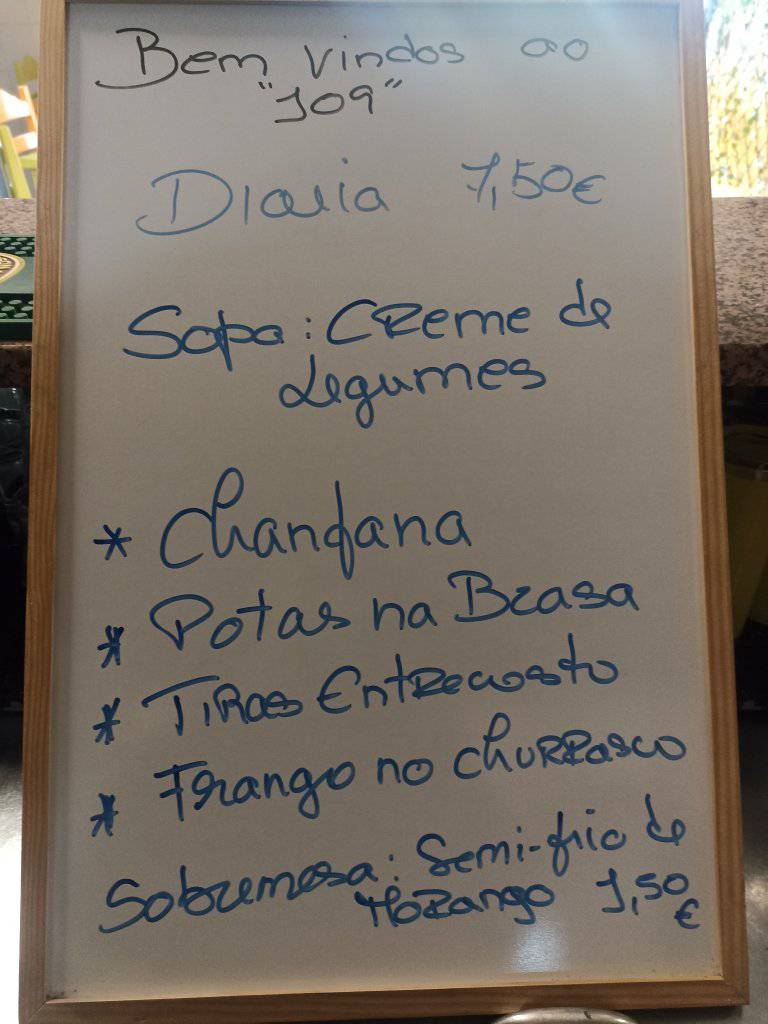 Bem vindos ao
"109"
Diaria 7,50€
Sopa: Creme de
Legumes
* Chanfana
* Potas na Brasa
* Tiras Entrecosto
* Frango no churrasco
Sobremesa: Semi-frio de
Morango 1,50
€